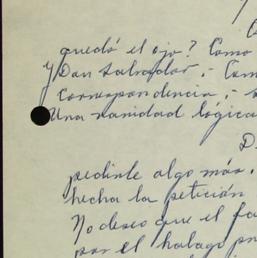 quedó el ojo? Como
y Don Salvador,- Com
correspondencia,- s
Una vanidad lógica
D
pedirle algo más.
hecha la petición
No deseo que el fa
por el halago pr